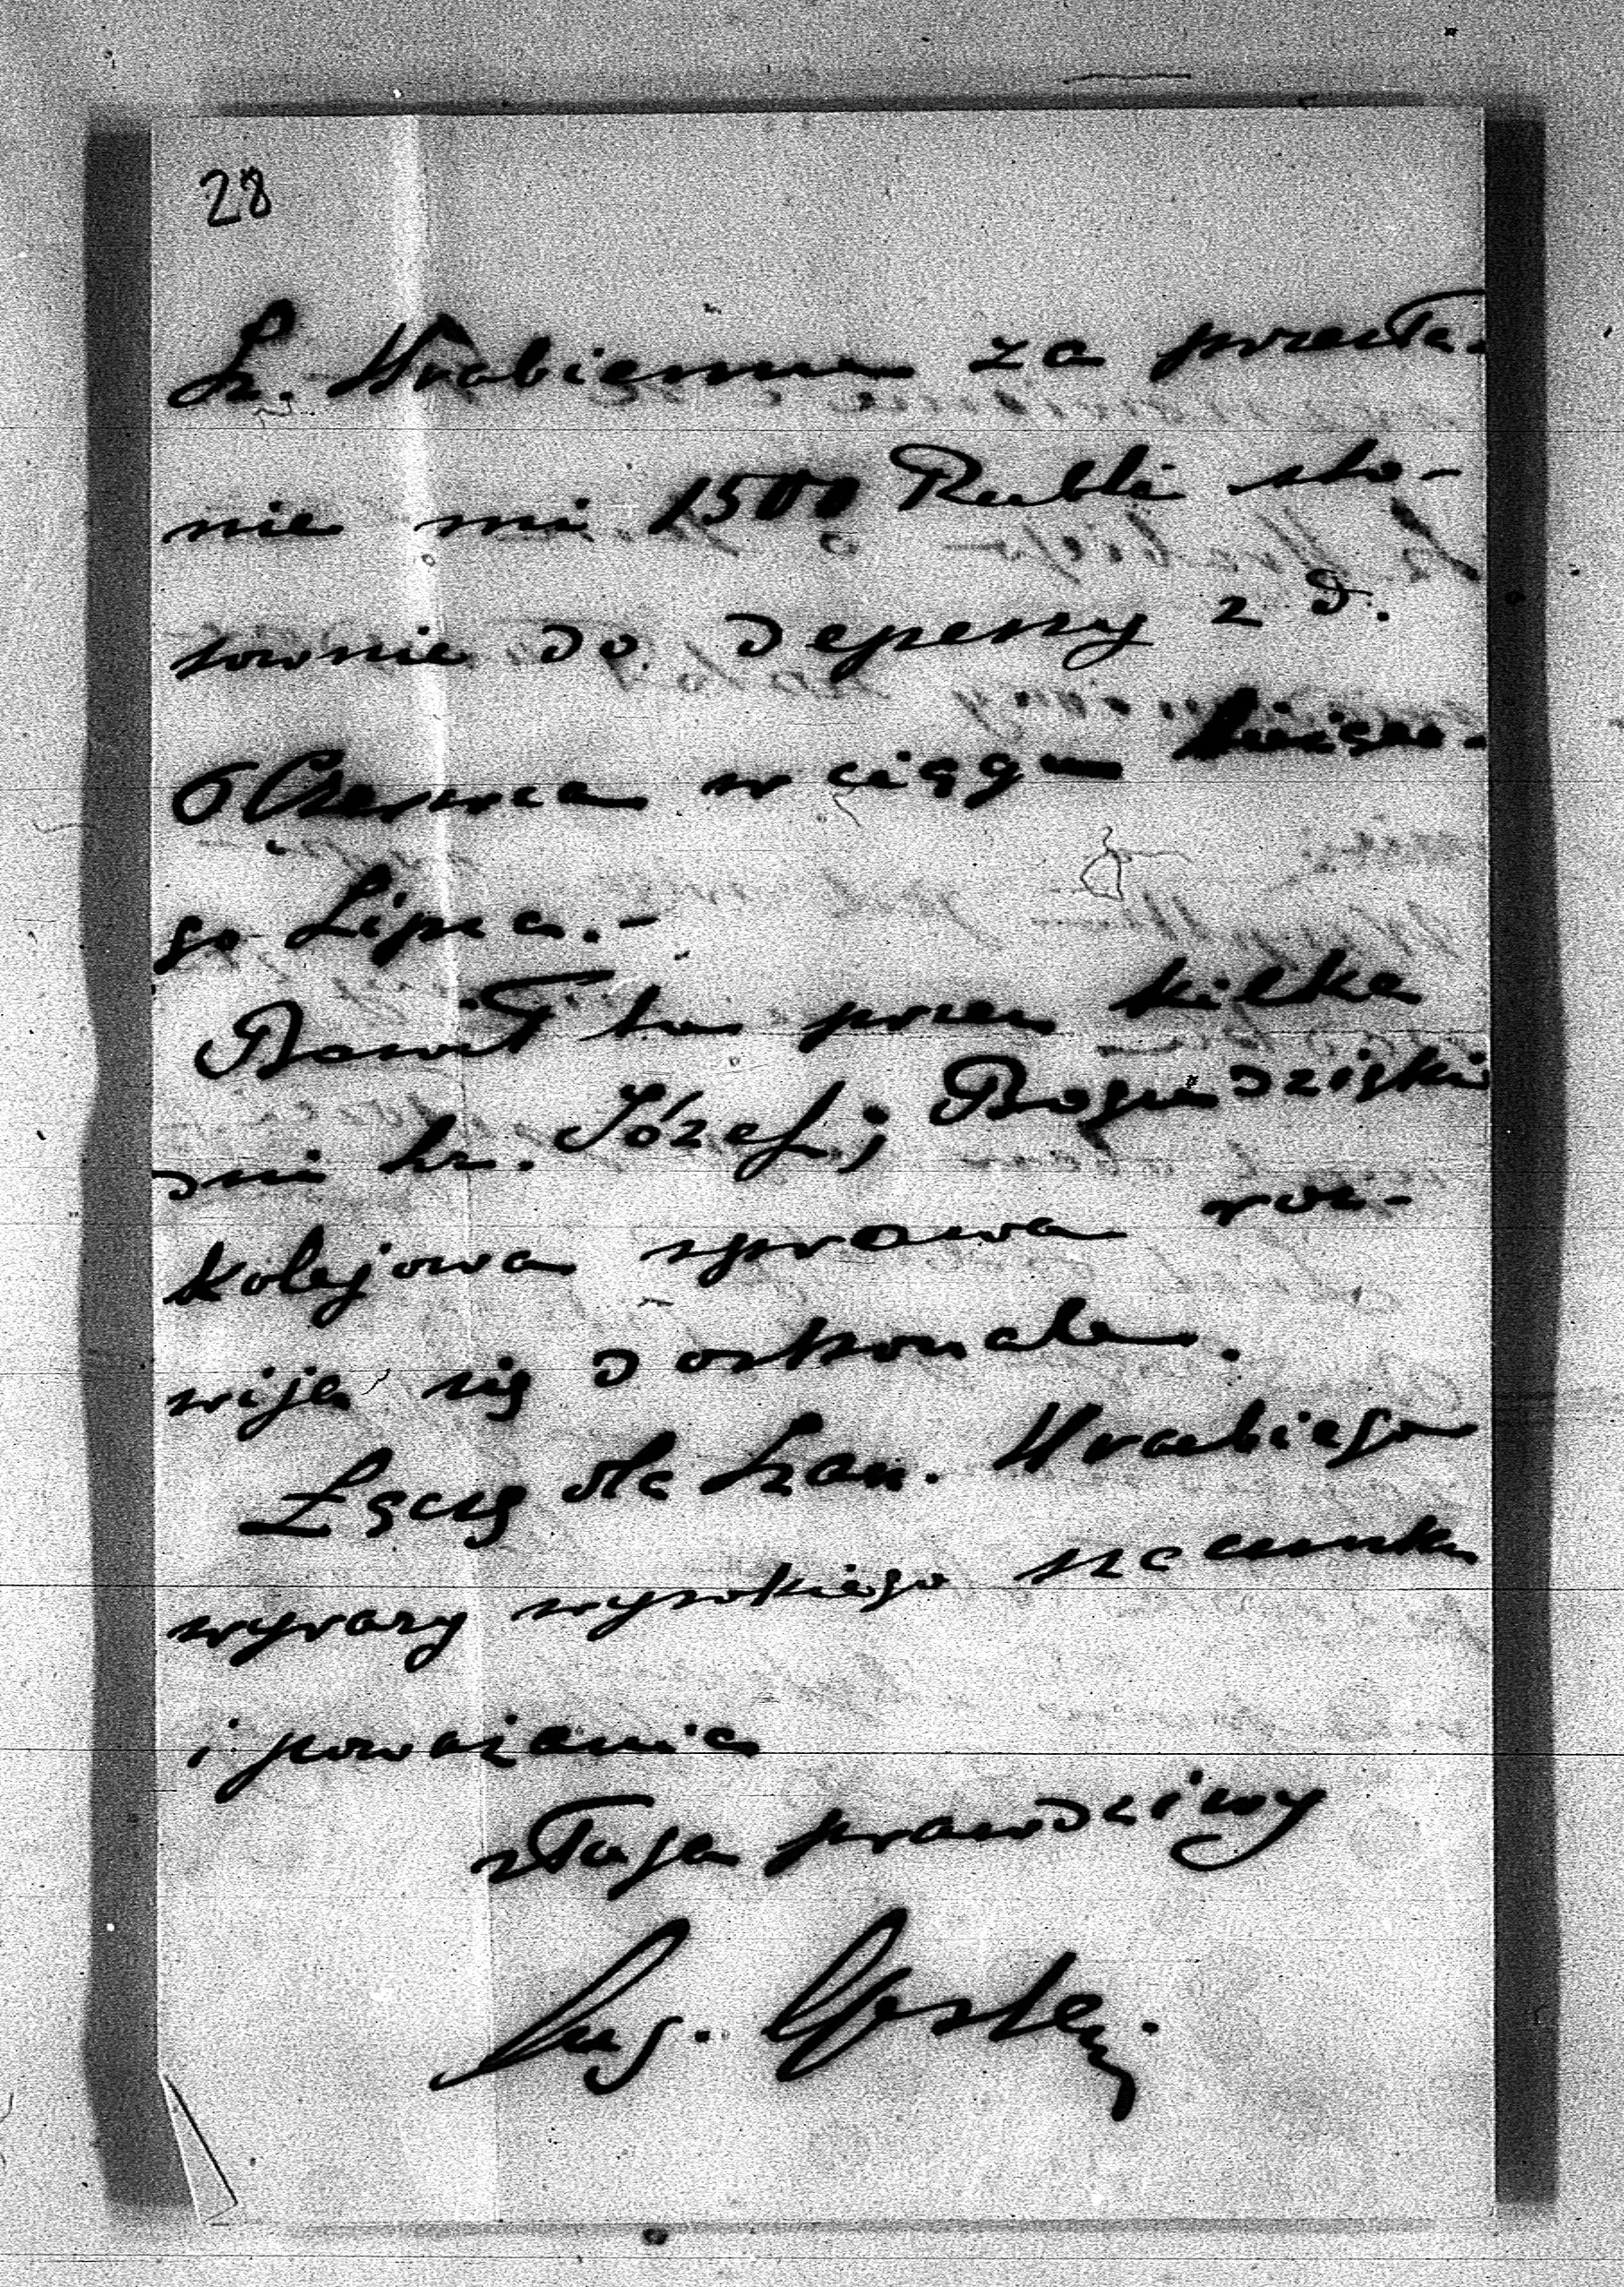 28
Sz. Hrabiemu za przesła-
nie mi 1500 Rubli sto-
sownie do depeszy z d.
6 Czerwca w ciągu bieżące-
go Lipca.-
Bawił tu przez kilka
dni hr. Józef; Bogu dzięki
kolejowa sprawa roz-
wija się doskonale.
Łączę dla Szan. Hrabiego
wyrazy wysokiego szacunku
i poważania
sługa prawdziwy